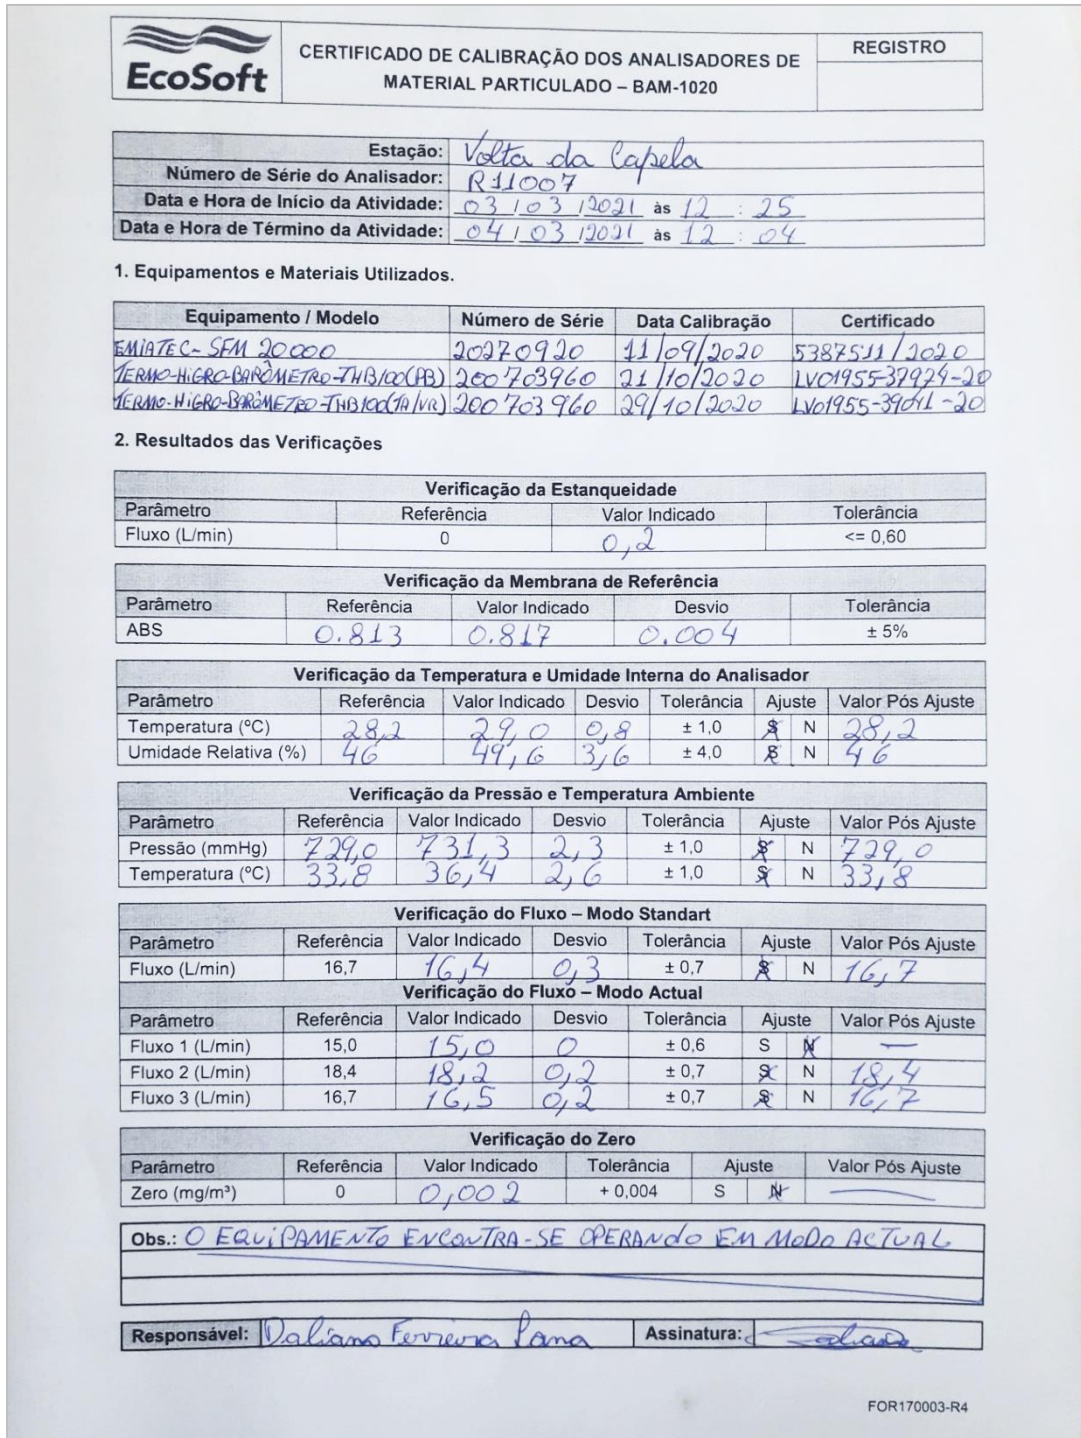 EcoSoft
CERTIFICADO DE CALIBRAÇÃO DOS ANALISADORES DE
MATERIAL PARTICULADO – BAM-1020
REGISTRO
Estação: Volta da Capela
Número de Série do Analisador: R11007
Data e Hora de Início da Atividade: 03/03/2021 às 12:25
Data e Hora de Término da Atividade: 04/03/2021 às 12:04
1. Equipamentos e Materiais Utilizados.
Equipamento / Modelo Número de Série Data Calibração Certificado
EMIATEC-SFM 20000 20270920 11/09/2020 5387511/2020
TERMO-HiGRO-BARÔMETRO-THB100(PB) 200703960 21/10/2020 LV01955-37924-20
TERMO-HiGRO-BARÔMETRO-THB100(TA/VR) 200703960 29/10/2020 LV01955-39041-20
2. Resultados das Verificações
Verificação da Estanqueidade
Parâmetro Referência Valor Indicado Tolerância
Fluxo (L/min) 0 0,2 <= 0,60
Verificação da Membrana de Referência
Parâmetro Referência Valor Indicado Desvio Tolerância
ABS 0.813 0.817 0.004 ± 5%
Verificação da Temperatura e Umidade Interna do Analisador
Parâmetro Referência Valor Indicado Desvio Tolerância Ajuste Valor Pós Ajuste
Temperatura (ºC) 28,2 29,0 0,8 ± 1,0 S N 28,2
Umidade Relativa (%) 46 49,6 3,6 ± 4,0 S N 46
Verificação da Pressão e Temperatura Ambiente
Parâmetro Referência Valor Indicado Desvio Tolerância Ajuste Valor Pós Ajuste
Pressão (mmHg) 729,0 731,3 2,3 ± 1,0 S N 729,0
Temperatura (ºC) 33,8 36,4 2,6 ± 1,0 S N 33,8
Verificação do Fluxo – Modo Standart
Parâmetro Referência Valor Indicado Desvio Tolerância Ajuste Valor Pós Ajuste
Fluxo (L/min) 16,7 16,4 0,3 ± 0,7 S N 16,7
Verificação do Fluxo – Modo Actual
Parâmetro Referência Valor Indicado Desvio Tolerância Ajuste Valor Pós Ajuste
Fluxo 1 (L/min) 15,0 15,0 0 ± 0,6 S N —
Fluxo 2 (L/min) 18,4 18,2 0,2 ± 0,7 S N 18,4
Fluxo 3 (L/min) 16,7 16,5 0,2 ± 0,7 S N 16,7
Verificação do Zero
Parâmetro Referência Valor Indicado Tolerância Ajuste Valor Pós Ajuste
Zero (mg/m³) 0 0,002 + 0,004 S N —
Obs.: O EQUiPAMENTO ENCONTRA-SE OPERANDO EM MODO ACTUAL
Responsável: Daliano Ferreira Lana Assinatura:
FOR170003-R4